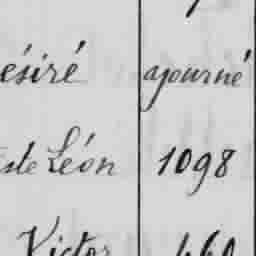 ésiré ajourné
ste Léon 1098
Victor 460